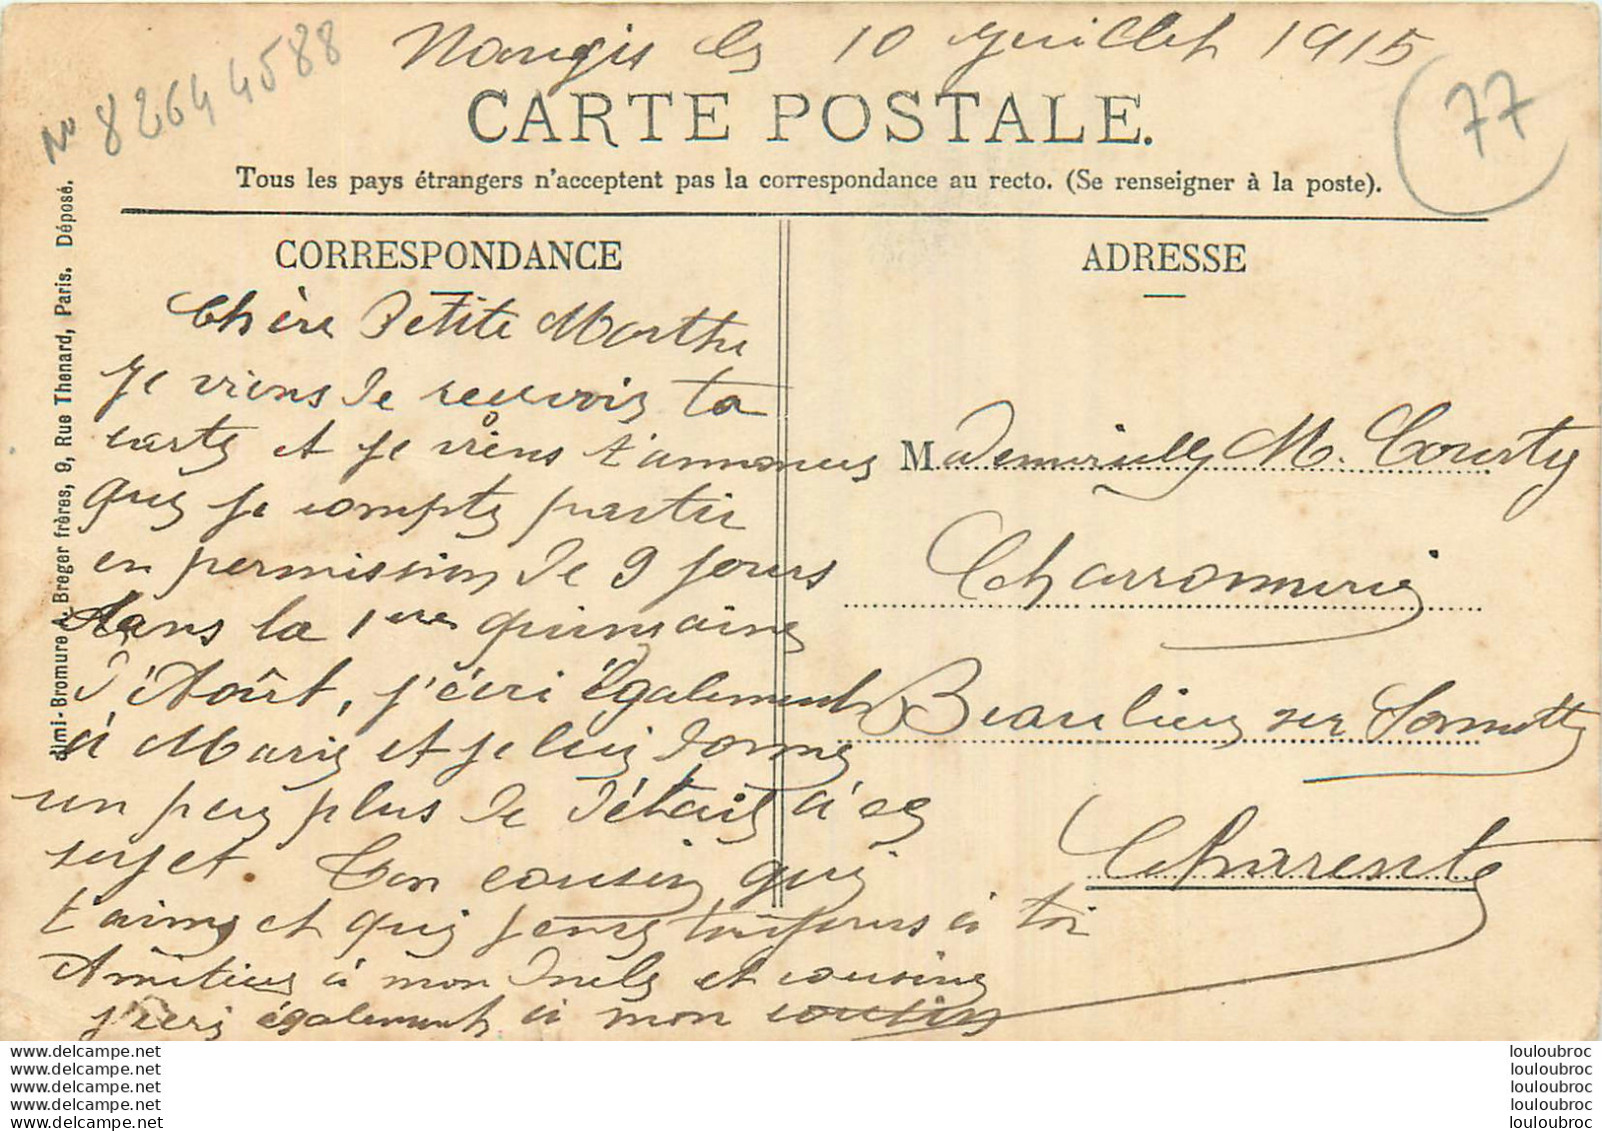 Nangis le 10 Juillet 1915
No 82644588
77
CARTE POSTALE.
Tous les pays étrangers n'acceptent pas la correspondance au recto. (Se renseigner à la poste).
Simi-Bromure A. Breger frères, 9, Rue Thenard, Paris. Déposé.
CORRESPONDANCE
Chère Petite Marthe
Je viens de recevoir ta
carte et je viens t'annoncer
que je compte partir
en permission de 9 jours
dans la 1ère quinzaine
d'Août, j'écri également
à Marie et je lui donne
un peu plus de détail à ce
sujet. Ton cousin qui
t'aime et qui pense toujours à toi
Amitiés à mon Oncle et cousine
j'écri également à mon cousin
ADRESSE
Mademoiselle M. Courty
Charronnerie
Beaulieu sur Sonnette
Charente
www.delcampe.net
www.delcampe.net
www.delcampe.net
www.delcampe.net
www.delcampe.net
louloubroc
louloubroc
louloubroc
louloubroc
louloubroc